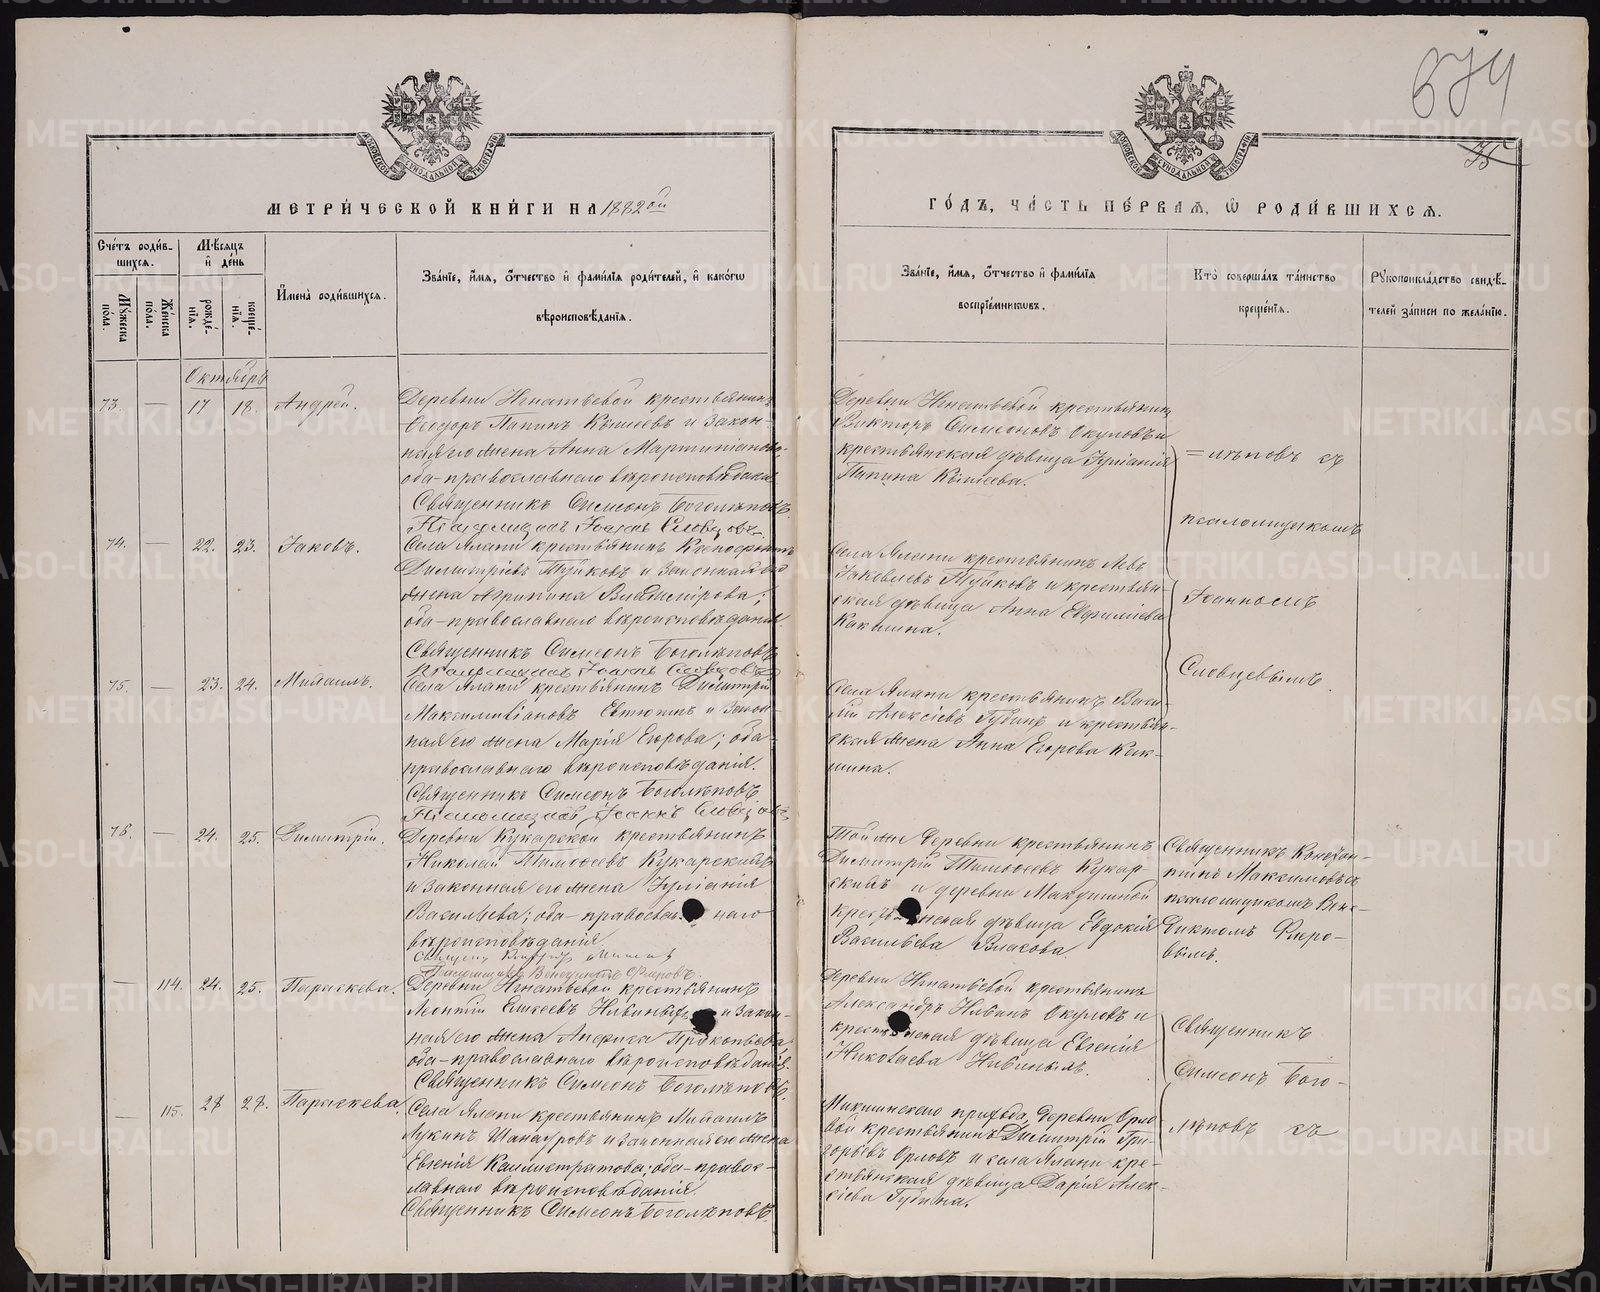 674
МЕТРИ́ЧЕСКОЙ КНИ́ГИ НА 1882ой
ГО́ДЪ, ЧА́СТЬ ПЕ́РВАЯ, Ѽ РОДИ́ВШИХСЯ.
Сче́тъ роди́в-
шихся.
Мѣ́сяцъ
и҆ де́нь
Мꙋжеска
по́ла.
Же́нска
по́ла.
рожде́-
нїѧ.
креще́-
нїѧ.
И҆мена̀ роди́вшихся.
Зва́нїе, и҆́мя, ѻ҆́тчество и҆ фами́лїя роди́телей, и҆ како́гѡ
вѣроисповѣ́данїя.
Зва́нїе, и҆́мя, ѻ҆́тчество и҆ фами́лїя
воспрїе́мниковъ.
Кто̀ соверша́лъ та́инство
креще́нїя.
Рꙋкоприкла́дство свидѣ́-
телей за́писи по жела́нїю.
Октябрь
73. — 17 18. Андрей.
Деревни Игнатьевой крестьянинъ
Ѳеодоръ Папинъ Кышевъ и закон-
ная его жена Анна Мартиніанова;
оба-православнаго вѣроисповѣданія
Священникъ Симеонъ Боголѣповъ.
Псаломщикъ Іоаннъ Словцовъ
Деревни Игнатьевой крестьянинъ
Викторъ Симеоновъ Окуловъ и
крестьянская дѣвица Іуліанія
Папина Кышева.
=лѣповъ съ
псаломщикомъ
Іоанномъ
Словцевымъ.
74. — 22. 23. Іаковъ.
Села Ялани крестьянинъ Ксенофонтъ
Димитріевъ Туйковъ и законная его
жена Агрипина Владимірова;
оба-православнаго вѣроисповѣданія
Священникъ Симеонъ Боголѣповъ
Псаломщикъ Іоаннъ Словцовъ
Села Ялани крестьянинъ Левъ
Іаковлевъ Туйковъ и крестьян-
ская дѣвица Анна Евфиміева
Какшина.
75. — 23. 24. Михаилъ.
Села Ялани крестьянинъ Димитрій
Максимиліановъ Евтюгинъ и закон-
ная его жена Марія Егорова; оба-
православнаго вѣроисповѣданія.
Священникъ Симеонъ Боголѣповъ
Псаломщикъ Іоаннъ Словцовъ
Села Ялани крестьянинъ Васи-
лій Алексіевъ Губинъ и крестьян-
ская жена Анна Егорова Как-
шина.
76. — 24. 25. Димитрій.
Деревни Кукарской крестьянинъ
Николай Тимоѳеевъ Кукарскихъ
и законная его жена Іуліанія
Васильева; оба-православнаго
вѣроисповѣданія
Псаломщикъ Венедиктъ Флеровъ.
Той же деревни крестьянинъ
Димитрій Тимоѳеевъ Кукар-
скихъ и деревни Макушиной
крестьянская дѣвица Евдокія
Васильева Власова.
Священникъ Констан-
тинъ Максимовъ съ
псаломщикомъ Вене-
диктомъ Флеро-
вымъ.
— 114. 24. 25. Параскева.
Деревни Игнатьевой крестьянинъ
Леонтій Елисеевъ Нивиныхъ и закон-
ная его жена Анфиса Прокопьева
оба-православнаго вѣроисповѣданія.
Священникъ Симеонъ Боголѣповъ.
Деревни Игнатьевой крестьянинъ
Александръ Ильинъ Окуловъ и
крестьянская дѣвица Евгенія
Николаева Нивиныхъ.
Священникъ
Симеонъ Бого-
лѣповъ съ
— 115. 27 27. Параскева.
Села Ялани крестьянинъ Михаилъ
Лукинъ Шанауровъ и законная его жена
Евгенія Каллистратова; оба-правос-
лавнаго вѣроисповѣданія.
Священникъ Симеонъ Боголѣповъ.
Микшинскаго прихода, деревни Орло-
вой крестьянинъ Димитрій Гри-
горьевъ Орловъ и села Ялани кре-
стьянская дѣвица Дарія Алек-
сіева Губина.